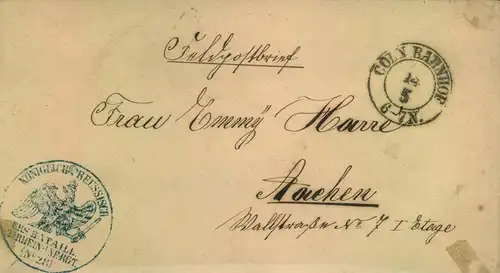 Feldpostbrief
CÖLN BAHNHOF
12
5
6-7N.
Frau Emmÿ Harre
Aachen
Wallstraße No 7 I Etage
KÖNIGLICH PREUSSISCH
RHEIN. INF. RGT.
(No 28)